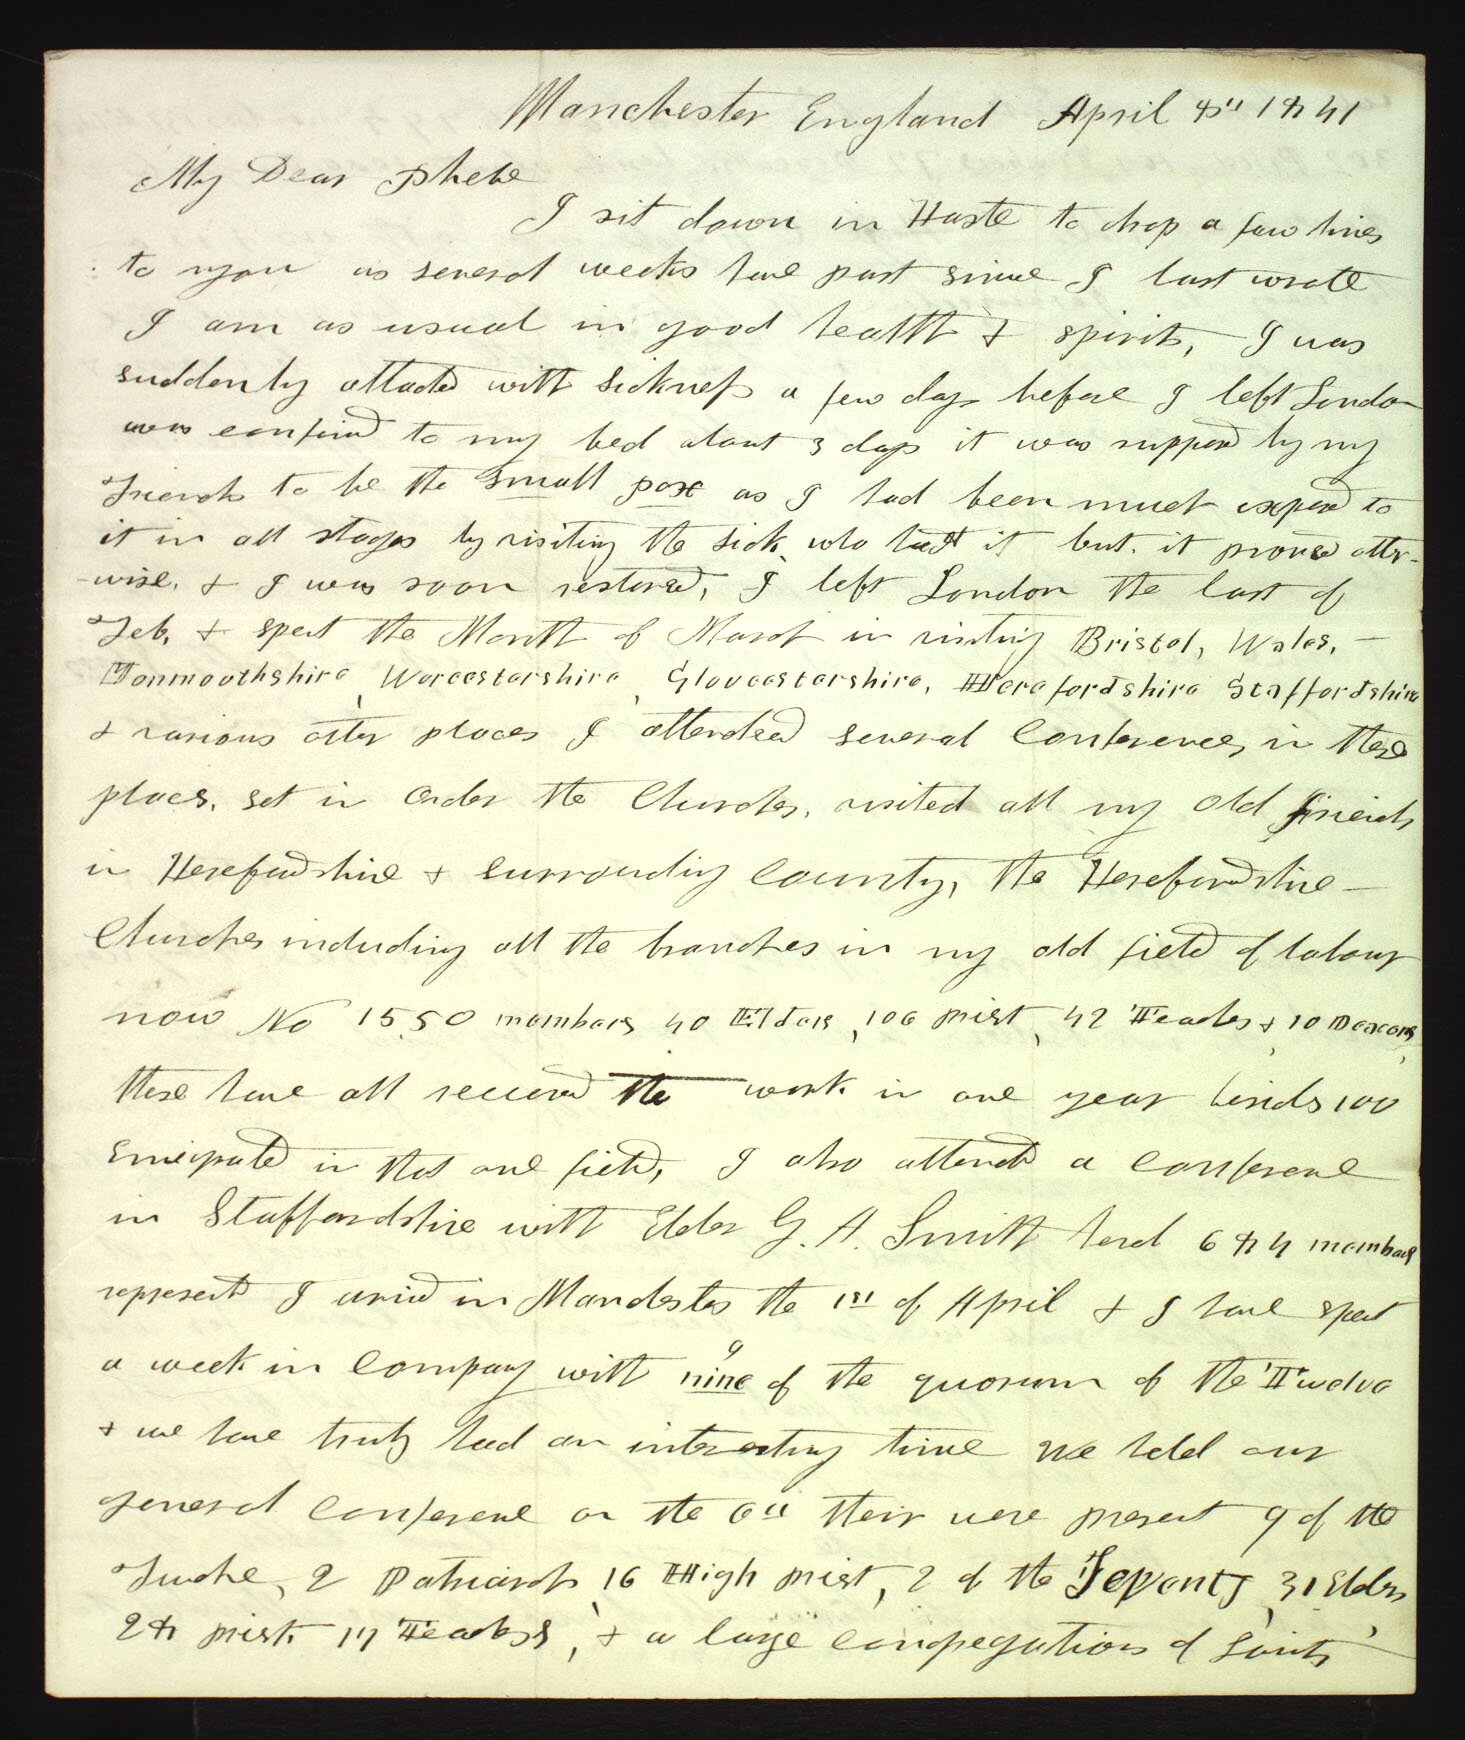 Manchester England April 8th 1841
My Dear Phebe
I sit down in Haste to drop a few lines
to you as several weeks have past since I last wrote
I am as usual in good health & spirits, I was
suddenly attacted with sickness a few days before I left London
was confined to my bed about 3 days it was supposed by my
Friends to be the small pox as I had been much exposed to
it in all stages by visiting the sick who had it but it proved other-
-wise. & I was soon restored, I left London the last of
Feb, & spent the Month of March in visiting Bristol, Wales,
Monmouthshire, Worcestershire, Gloucestershire, Herefordshire Staffordshire
& various other places I attended several Conferences, in these
places, set in order the Churches, visited all my old Friends
in Herefordshire & surrounding County, the Herefordshire
Churches including all the branches in my old field of labour
now No 1550 members 40 Elders, 106 priest, 42 Teachers & 10 Deacons,
these have all received the work in one year besids 100
Emigrated in that one field, I also attended a conference
in Staffordshire with Elder G. A. Smith heard 684 members
represented I arived in Manchester the 1st of April & I have spent
a week in company with nine 9 of the quorum of the Twelve
& we have truly had an interesting time we held our
general conference on the 6th their were present 9 of the
Twelve, 2 Patriarch, 16 High priest, 2 of the Seventy, 31 Elders
28 priest 17 Teachers, & a large congregations of Saints